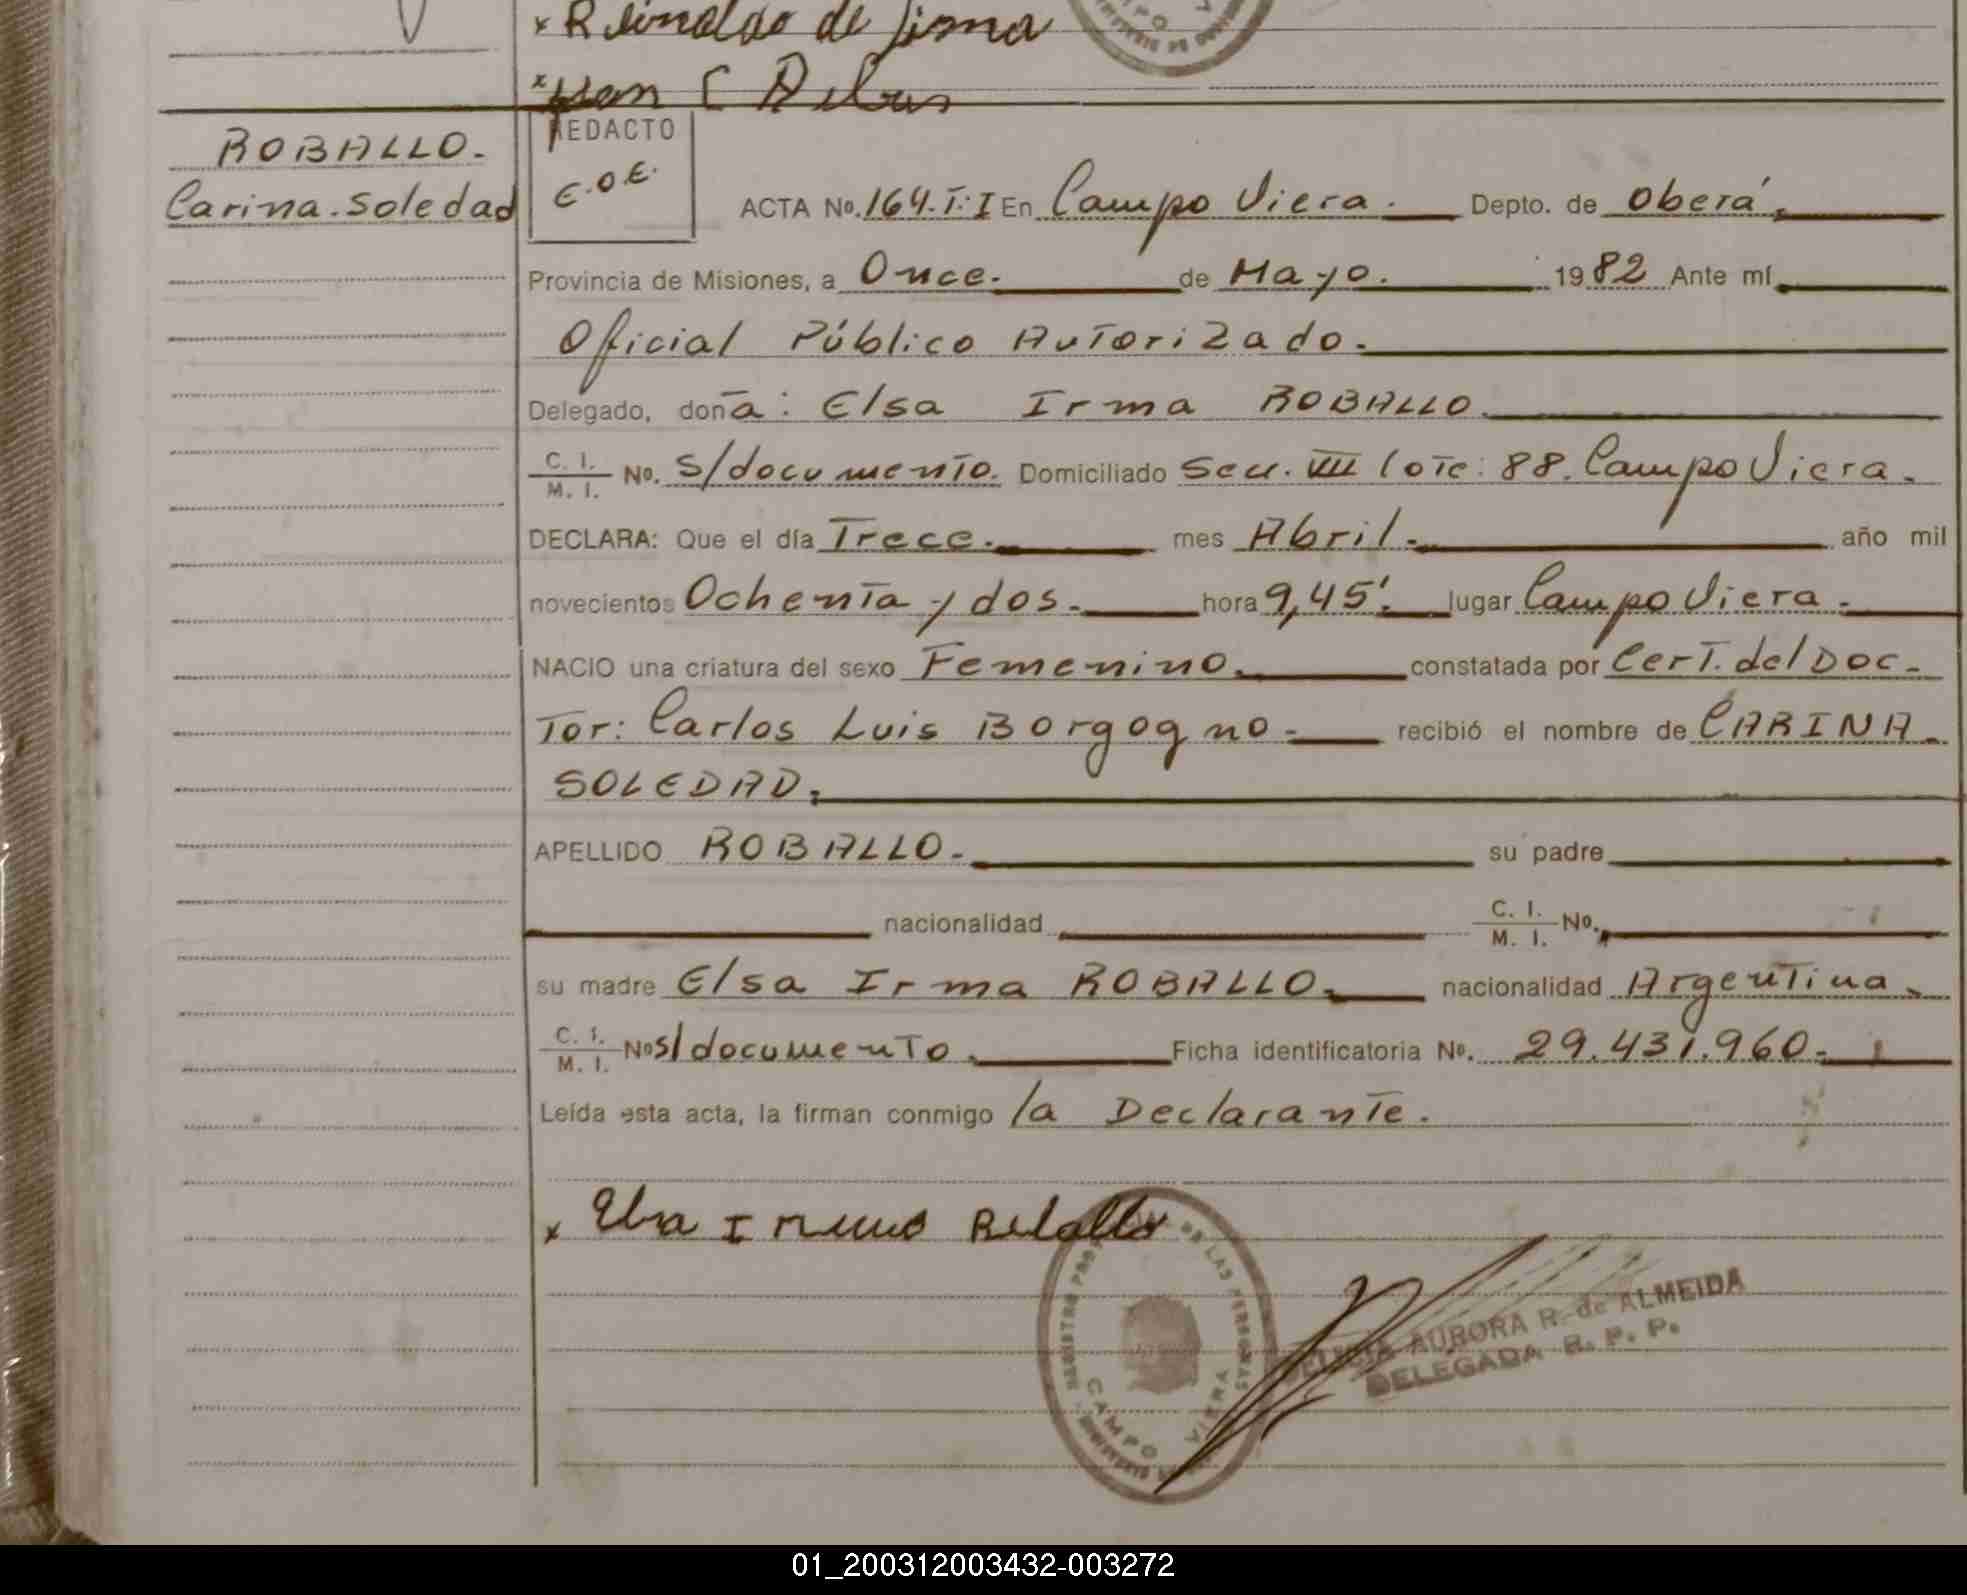 x Reinaldo de Lima
CAMPO
ROBALLO.
Carina. Soledad
REDACTO
E.O.E.
ACTA No. 164. T: I En Campo Viera. Depto. de Oberá.
Provincia de Misiones, a Once. de Mayo. 1982 Ante mí
Oficial Público Autorizado.
Delegado, doña: Elsa Irma ROBALLO
C. I. / M. I. No. s/documento. Domiciliado Secc. VIII lote: 88. Campo Viera.
DECLARA: Que el día Trece. mes Abril. año mil
novecientos Ochenta y dos. hora 9,45'. lugar Campo Viera.
NACIO una criatura del sexo Femenino. constatada por Cert. del Doc-
tor: Carlos Luis Borgogno. recibió el nombre de CARINA
SOLEDAD.
APELLIDO ROBALLO. su padre
nacionalidad C. I. / M. I. No.
su madre Elsa Irma ROBALLO. nacionalidad Argentina.
C. I. / M. I. No s/documento. Ficha identificatoria No. 29.431.960.
Leída esta acta, la firman conmigo la Declarante.
x Elsa Irma Roballo
DE LAS PERSONAS
CAMPO VIERA
AURORA R. de ALMEIDA
DELEGADA R. P. P.
01_200312003432-003272